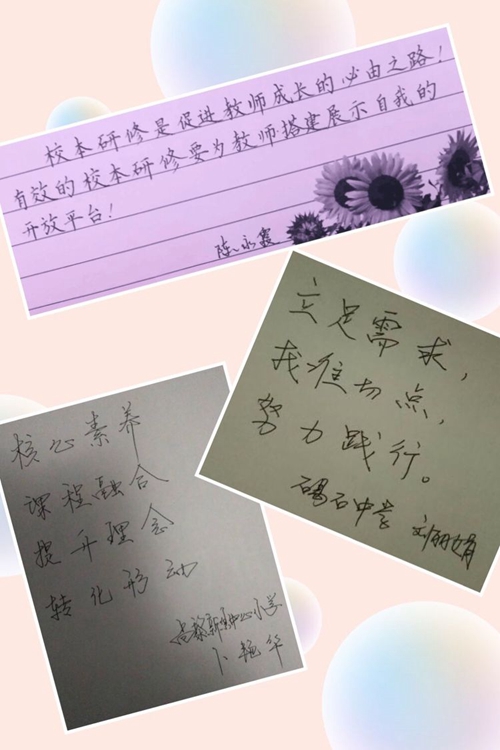 校本研修是促进教师成长的必由之路！
有效的校本研修要为教师搭建展示自我的
开放平台！
陈永霞
立足需求，
找准切点，
努力践行。
碣石中学 刘丽娟
核心素养
课程融合
提升理念
转化形动
中心小学
卜艳华